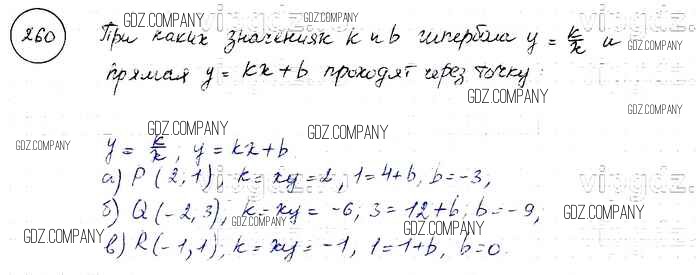 260 При каких значениях k и b гипербола y = k/x и
прямая y = kx + b проходят через точку:
y = k/x; y = kx + b
а) P(2,1); k = xy = 2, 1 = 4 + b, b = -3,
б) Q(-2,3), k = xy = -6, 3 = 12 + b, b = -9,
в) R(-1,1), k = xy = -1, 1 = 1 + b, b = 0.
GDZ.COMPANY
GDZ.COMPANY
GDZ.COMPANY
GDZ.COMPANY
GDZ.COMPANY
GDZ.COMPANY
GDZ.COMPANY
GDZ.COMPANY
GDZ.COMPANY
GDZ.COMPANY
GDZ.COMPANY
GDZ.COMPANY